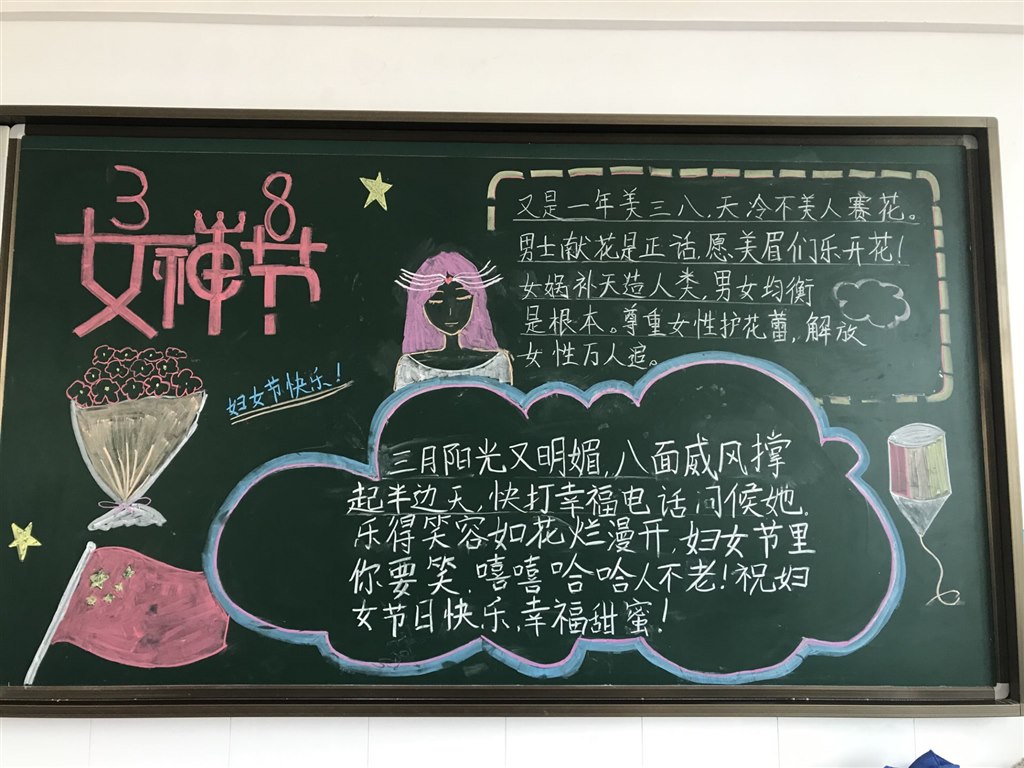 3 8
女神节
妇女节快乐!
又是一年美三八,天冷不美人赛花。
男士献花是正话,愿美眉们乐开花!
女娲补天造人类,男女均衡
是根本。尊重女性护花蕾,解放
女性万人逗。
三月阳光又明媚,八面威风撑
起半边天,快打幸福电话问候她.
乐得笑容如花烂漫开,妇女节里
你要笑.嘻嘻哈哈人不老!祝妇
女节日快乐,幸福甜蜜!